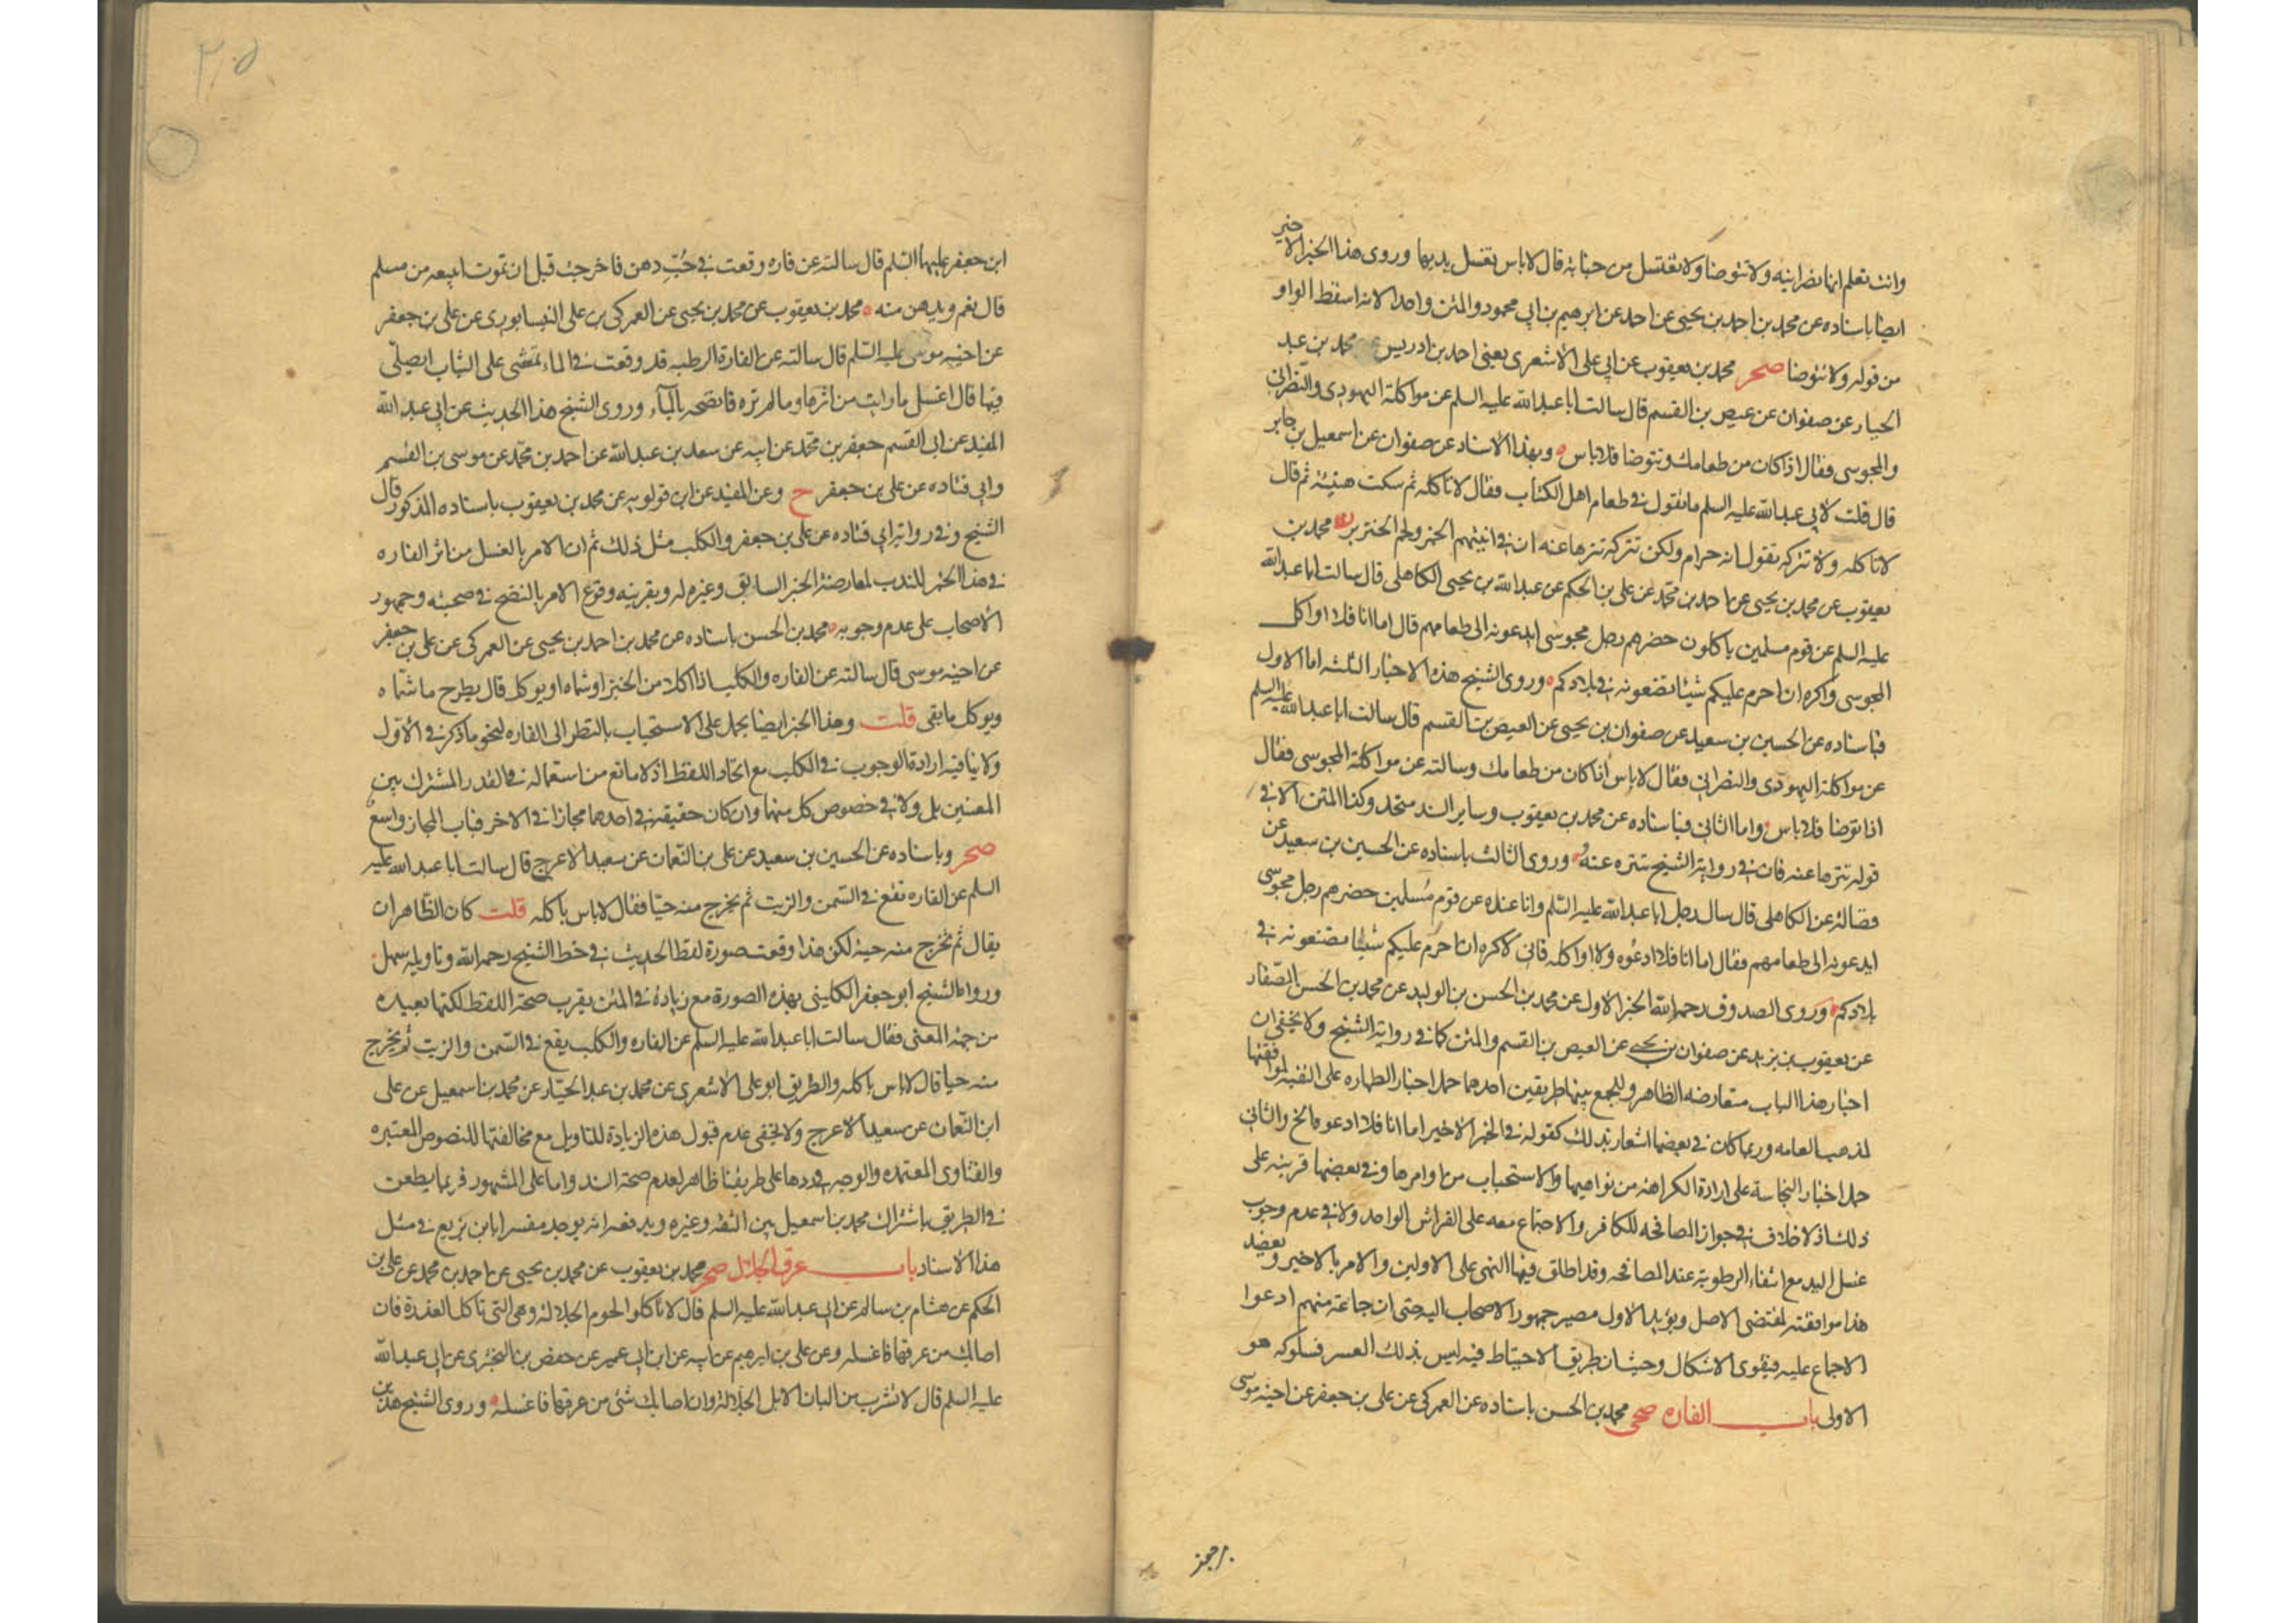 وانت تعلم انها نصرانيه ولا تتوضا ولا تغتسل من جنابة قال لا باس تغسل يديها وروى هذا الخبر الاخير
ايضا باسناده عن محمد بن احمد بن يحيى عن احمد عن ابرهيم بن ابي محمود والمتن واحد الا انه اسقط الواو
من قوله ولا تتوضا صحر محمد بن يعقوب عن ابي على الاشعرى يعنى احمد بن ادريس عن محمد بن عبد
الجبار عن صفوان عن عيص بن القسم قال سالت ابا عبد الله عليه السلم عن مواكلة اليهودى والنصرانى
والمجوسى فقال اذا كان من طعامك وتتوضا فلا باس وبهذا الاسناد عن صفوان عن اسمعيل بن جابر
قال قلت لابي عبد الله عليه السلم ما تقول في طعام اهل الكتاب فقال لا تاكله ثم سكت هنيئة ثم قال
لا تاكله ولا تتركه تقول انه حرام ولكن تتركه تنزها عنه ان في انيتهم الخمر ولحم الخنزير محمد بن
يعقوب عن محمد بن يحيى عن احمد بن محمد عن على بن الحكم عن عبد الله بن يحيى الكاهلى قال سالت ابا عبد الله
عليه السلم عن قوم مسلمين ياكلون حضرهم رجل مجوسى ايدعونه الى طعامهم قال اما انا فلا اواكل
المجوسى واكره ان احرم عليكم شيئا تصنعونه في بلادكم وروى الشيخ هذه الاخبار الثلثه اما الاول
فباسناده عن الحسين بن سعيد عن صفوان بن يحيى عن العيص بن القسم قال سالت ابا عبد الله عليه السلم
عن مواكلة اليهودى والنصرانى فقال لا باس اذا كان من طعامك وسالته عن مواكلة المجوسى فقال
اذا توضا فلا باس واما الثانى فباسناده عن محمد بن يعقوب وساير السند متحد وكذا المتن الا في
قوله تنزها عنه فان في رواية الشيخ تتنزه عنه وروى الثالث باسناده عن الحسين بن سعيد عن
فضالة عن الكاهلى قال سال رجل ابا عبد الله عليه السلم وانا عنده عن قوم مسلمين حضرهم رجل مجوسى
ايدعونه الى طعامهم فقال اما انا فلا ادعوه ولا اواكله فانى لاكره ان احرم عليكم شيئا تصنعونه في
بلادكم وروى الصدوق رحمه الله الخبر الاول عن محمد بن الحسن بن الوليد عن محمد بن الحسن الصفار
عن يعقوب بن يزيد عن صفوان بن يحيى عن العيص بن القسم والمتن كما في رواية الشيخ ولا يخفى ان
اخبار هذا الباب متعارضه الظاهر وللجمع بينها طريقين احدهما حمل اخبار الطهاره على التقيه لموافقتها
لمذهب العامه وربما كان في بعضها اشعار بذلك كقوله في الخبر الاخير اما انا فلا ادعوه الخ والثانى
حمل اخبار النجاسة على ارادة الكراهة من نواهيها والاستحباب من اوامرها وفي بعضها قرينه على
ذلك اذ لا خلاف في جواز المصافحه للكافر والاجتماع معه على الفراش الواحد ولا في عدم وجوب
غسل اليد مع انتفاء الرطوبة عند المصافحه وقد اطلق فيها النهى على الاولين والامر بالاخير ويعضد
هذا موافقته لمقتضى الاصل ويؤيد الاول مصير جمهور الاصحاب اليه حتى ان جماعة منهم ادعوا
الاجماع عليه فيقوى الاشكال وحيث ان طريق الاحتياط فيه ليس بذلك العسر فسلوكه هو
الاولى باب الفاره صحى محمد بن الحسن باسناده عن العمركى عن على بن جعفر عن اخيه موسى
٢٠٥
ابن جعفر عليهما السلم قال سالته عن فاره وقعت في حُبّ دهن فاخرجت قبل ان تموت ايبيعه من مسلم
قال نعم ويدهن منه محمد بن يعقوب عن محمد بن يحيى عن العمركى بن على النيسابورى عن على بن جعفر
عن اخيه موسى عليه السلم قال سالته عن الفارة الرطبه قد وقعت في الماء تمشى على الثياب ايصلّى
فيها قال اغسل ما رايت من اثرها وما لم تره فانضحه بالماء وروى الشيخ هذا الحديث عن ابي عبد الله
المفيد عن ابي القسم جعفر بن محمد عن ابيه عن سعد بن عبد الله عن احمد بن محمد عن موسى بن القسم
وابي قتاده عن على بن جعفر ح وعن المفيد عن ابن قولويه عن محمد بن يعقوب باسناده المذكور قال
الشيخ وفي رواية ابي قتاده عن على بن جعفر والكلب مثل ذلك ثم ان الامر بالغسل من اثر الفاره
في هذا الخبر للندب لمعارضة الخبر السابق وغيره له وبقرينه وقوع الامر بالنضح في صحبته وجمهور
الاصحاب على عدم وجوبه محمد بن الحسن باسناده عن محمد بن احمد بن يحيى عن العمركى عن على بن جعفر
عن اخيه موسى قال سالته عن الفاره والكلب اذا اكلا من الخبز او شماه ايوكل قال يطرح ما شماه
ويوكل ما بقى قلت وهذا الخبر ايضا يحمل على الاستحباب بالنظر الى الفاره لنحو ما ذكر في الاول
ولا ينافيه ارادة الوجوب في الكلب مع اتحاد اللفظ اذ لا مانع من استعماله في القدر المشترك بين
المعنيين بل ولا في خصوص كل منهما وان كان حقيقة في احدهما مجازا في الاخر فباب المجاز واسع
صحر وباسناده عن الحسين بن سعيد عن على بن النعمان عن سعيد الاعرج قال سالت ابا عبد الله عليه
السلم عن الفاره تقع في السمن والزيت ثم يخرج منه حيّا فقال لا باس باكله قلت كان الظاهر ان
يقال ثم تخرج منه حية لكن هذا وقعت صورة لفظ الحديث في خط الشيخ رحمه الله وتاويله سهل
ورواه الشيخ ابو جعفر الكلينى بهذه الصورة مع زيادة في المتن يقرب صحة اللفظ لكنها بعيده
من جهة المعنى فقال سالت ابا عبد الله عليه السلم عن الفاره والكلب يقع في السمن والزيت ثم يخرج
منه حيا قال لا باس باكله والطريق ابو على الاشعرى عن محمد بن عبد الجبار عن محمد بن اسمعيل عن على
ابن النعمان عن سعيد الاعرج ولا يخفى عدم قبول هذه الزيادة للتاويل مع مخالفتها للنصوص المعتبره
والفتاوى المعتمده والوجه في ردها على طريقنا ظاهر لعدم صحة السند واما على المشهور فربما يطعن
في الطريق باشتراك محمد بن اسمعيل بين الثقه وغيره ويدفعه انه يوجد مفسرا بابن بزيع في مثل
هذا الاسناد باب عرق الجلال صحر محمد بن يعقوب عن محمد بن يحيى عن احمد بن محمد عن على بن
الحكم عن هشام بن سالم عن ابي عبد الله عليه السلم قال لا تاكلوا لحوم الجلالة وهى التى تاكل العذرة فان
اصابك من عرقها فاغسله وعن على بن ابرهيم عن ابيه عن ابن ابي عمير عن حفص بن البخترى عن ابي عبد الله
عليه السلم قال لا تشرب من البان الابل الجلالة وان اصابك شئ من عرقها فاغسله وروى الشيخ هذين